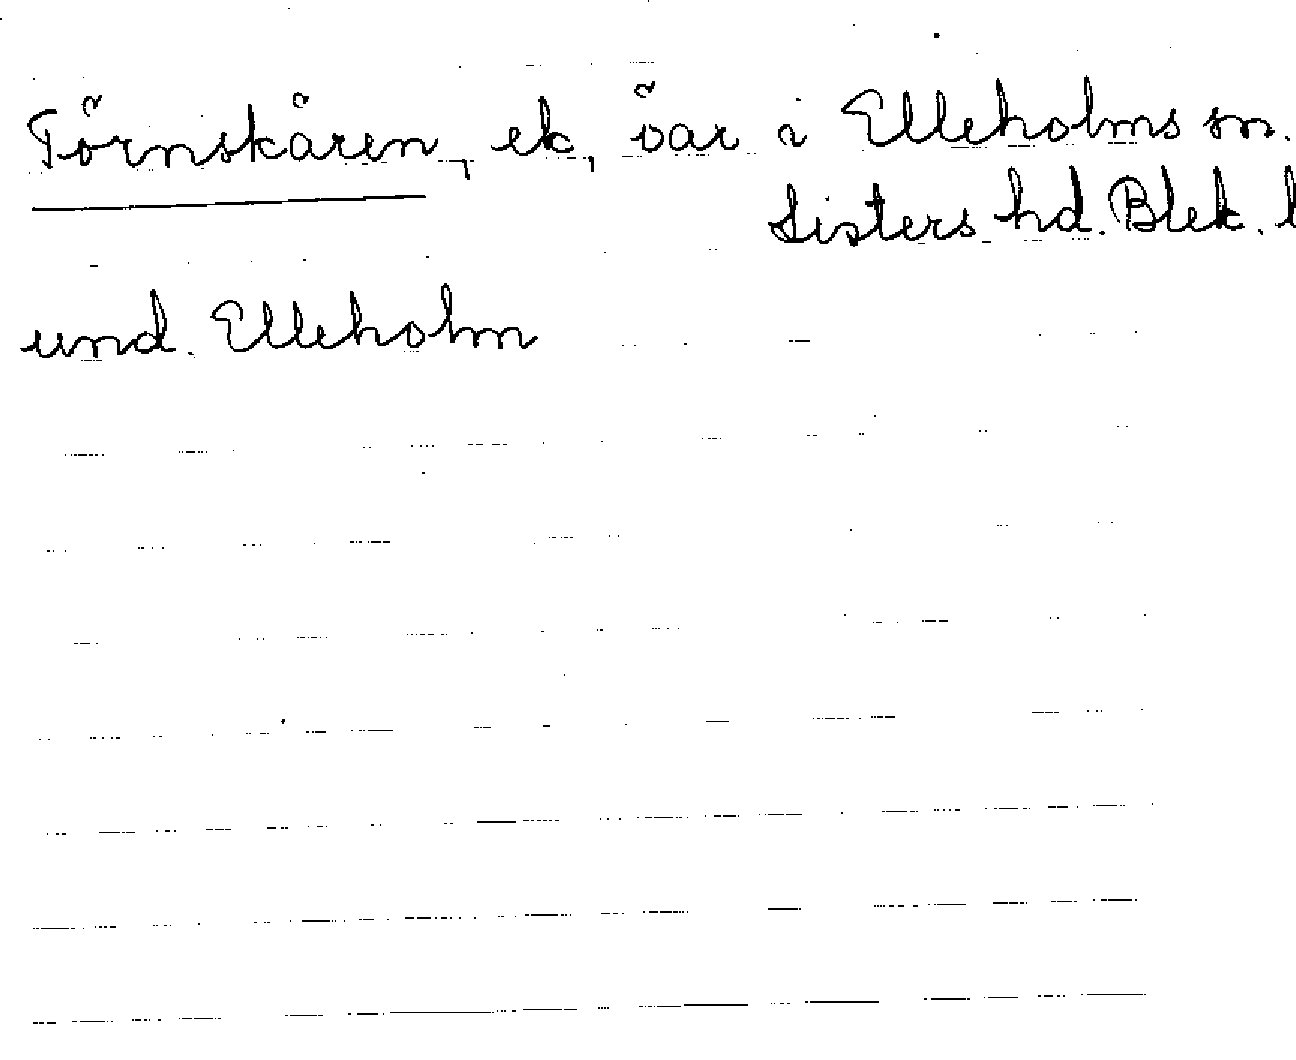 Törnskären, ek, övar i Elleholms sn.
Listers hd. Blek. l
und. Elleholm